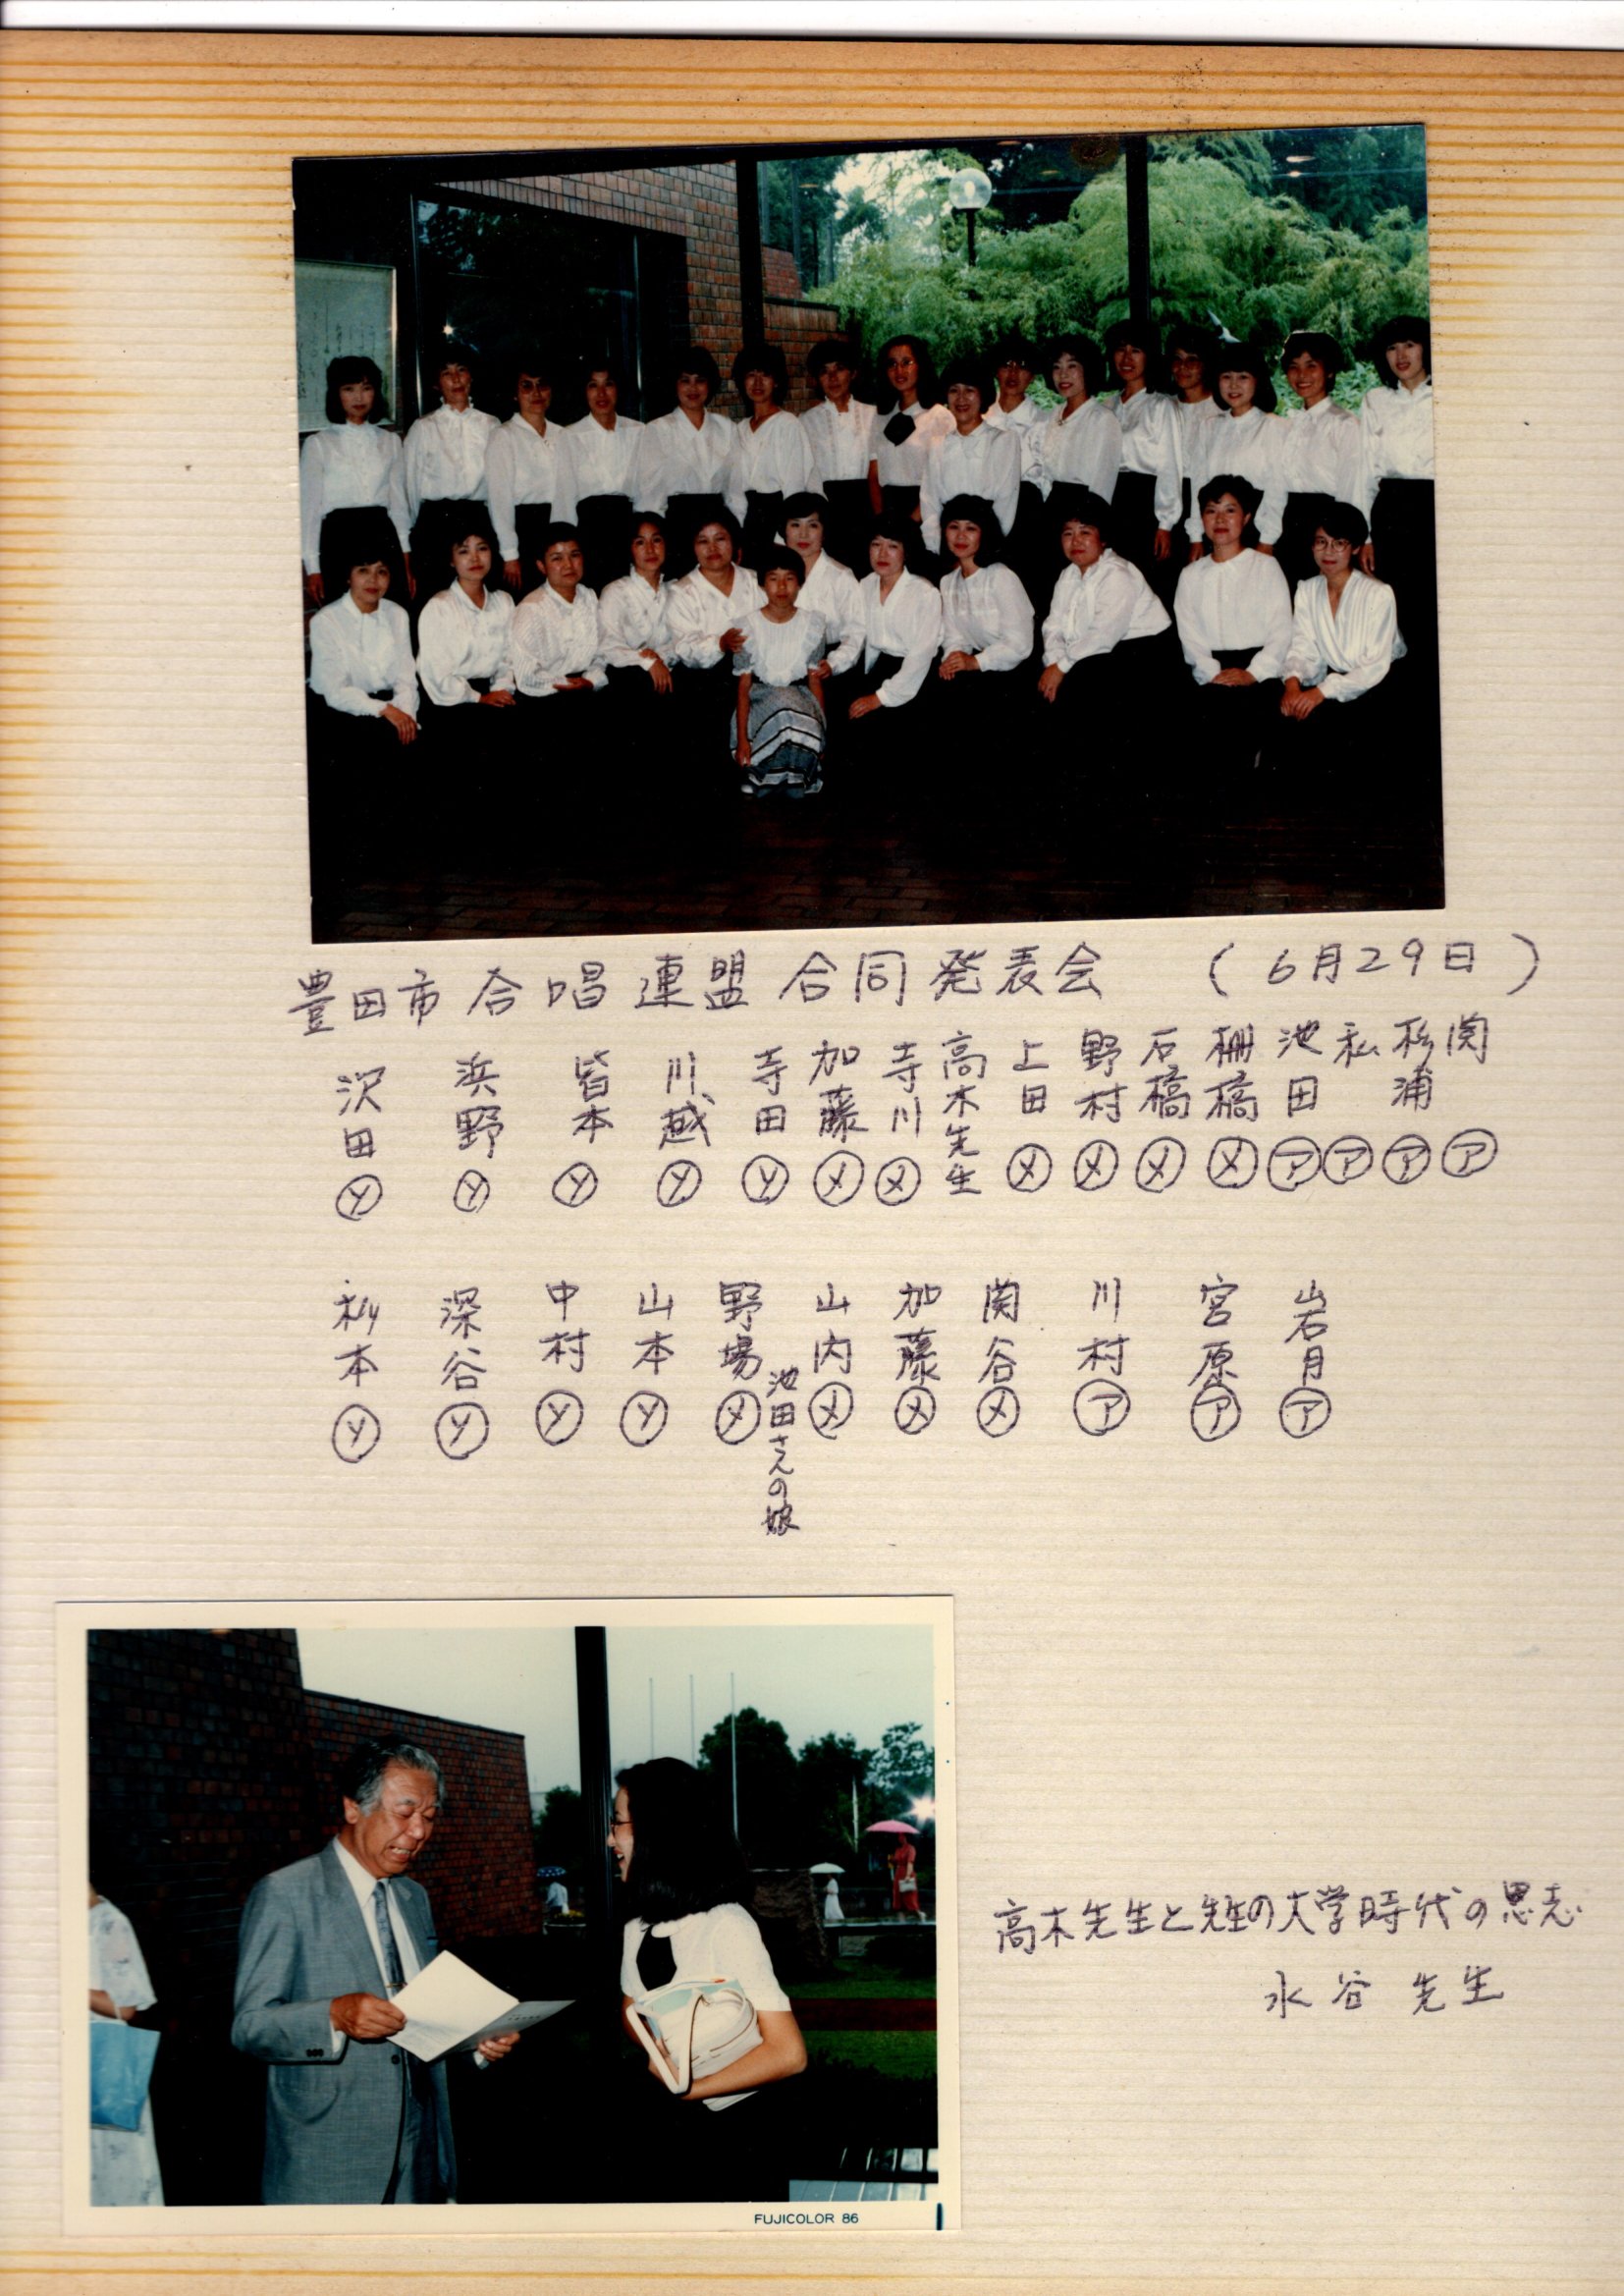 豊田市合唱連盟 合同発表会 (6月29日)
沢田 ソ
浜野 ソ
皆本 ソ
川越 ソ
寺田 ソ
加藤 メ
寺川 メ
高木先生
上田 メ
野村 メ
石橋 メ
棚橋 メ
池田 ア
私 ア
杉浦 ア
関 ア
本 ソ
深谷 ソ
中村 ソ
山本 ソ
野場 メ
池田さんの娘
山内 メ
加藤 メ
関谷 メ
川村 ア
宮原 ア
岩月 ア
高木先生と先生の大学時代の恩志
水谷 先生
FUJICOLOR 86